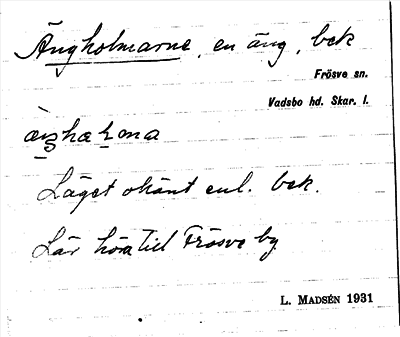 Ängholmarne, en äng, bek
Frösve sn.
Vadsbo hd. Skar. l.
Läget okänt enl. bek.
Lär höra till Frösve by
L. MADSÉN 1931